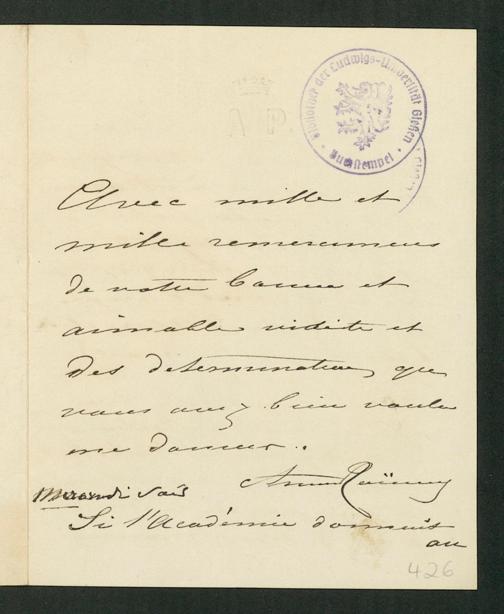 A P.
Bibliothek der Ludwigs-Universität Gießen
Avec mille et
mille remercimens
de votre bonne et
aimable visite et
des determinations que
vous avez bien voulu
me donner.
soir
Si l'Académie donnait
au
426